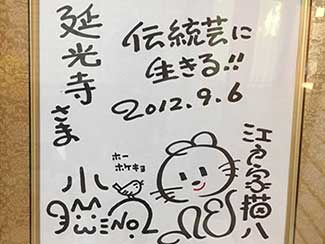 延光寺さま
伝統芸に
生きる!!
2012.9.6
江戸家猫八
ホー
ホケキョ
小